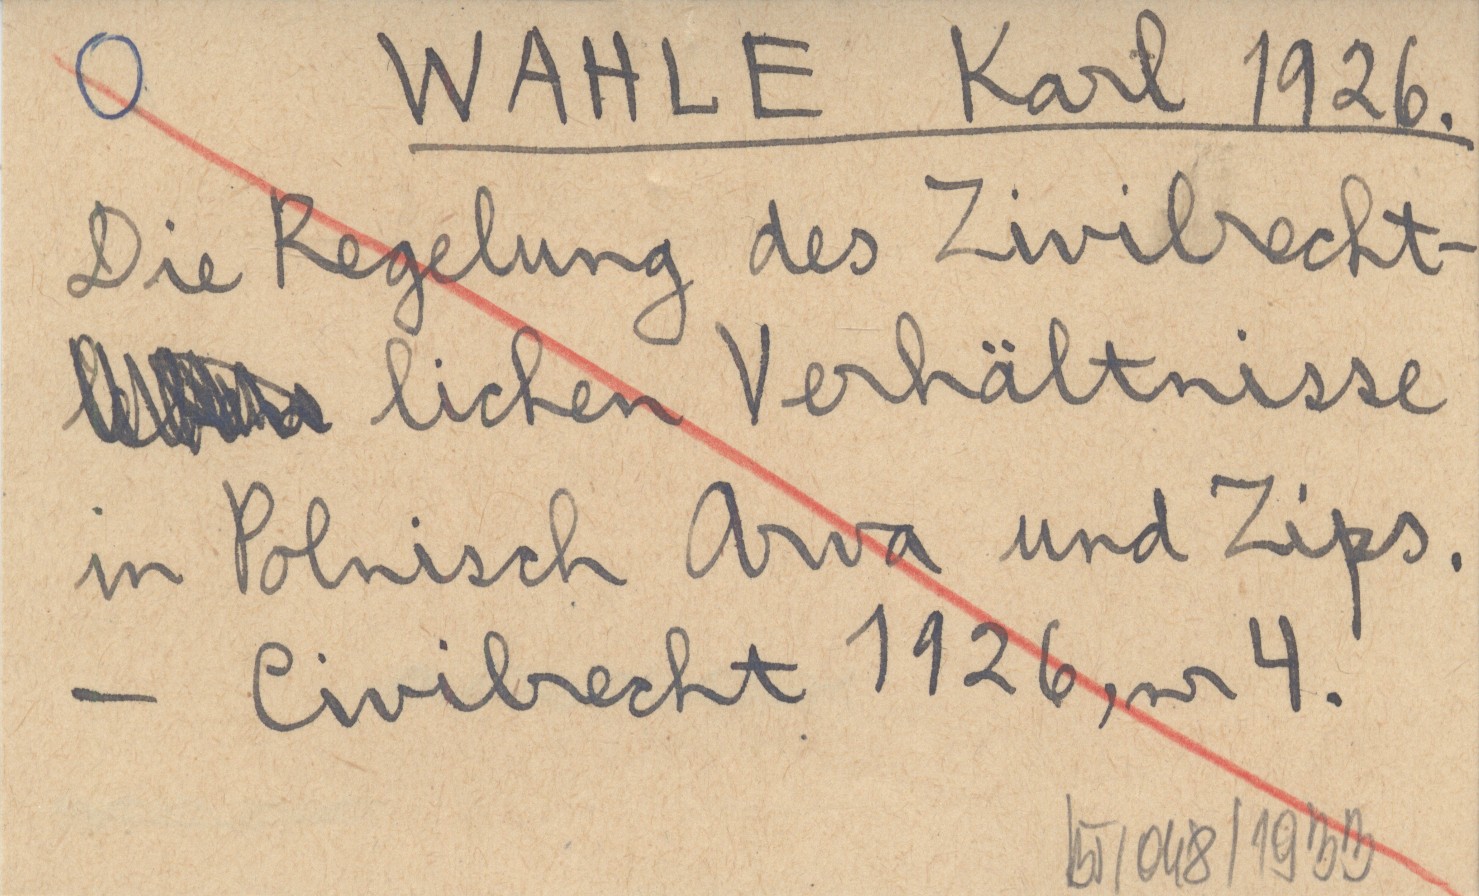 O WAHLE Karl 1926.
Die Regelung des Zivilrecht-
lichen Verhältnisse
in Polnisch Arva und Zips.
— Civilrecht 1926, nr 4.
/048/1933